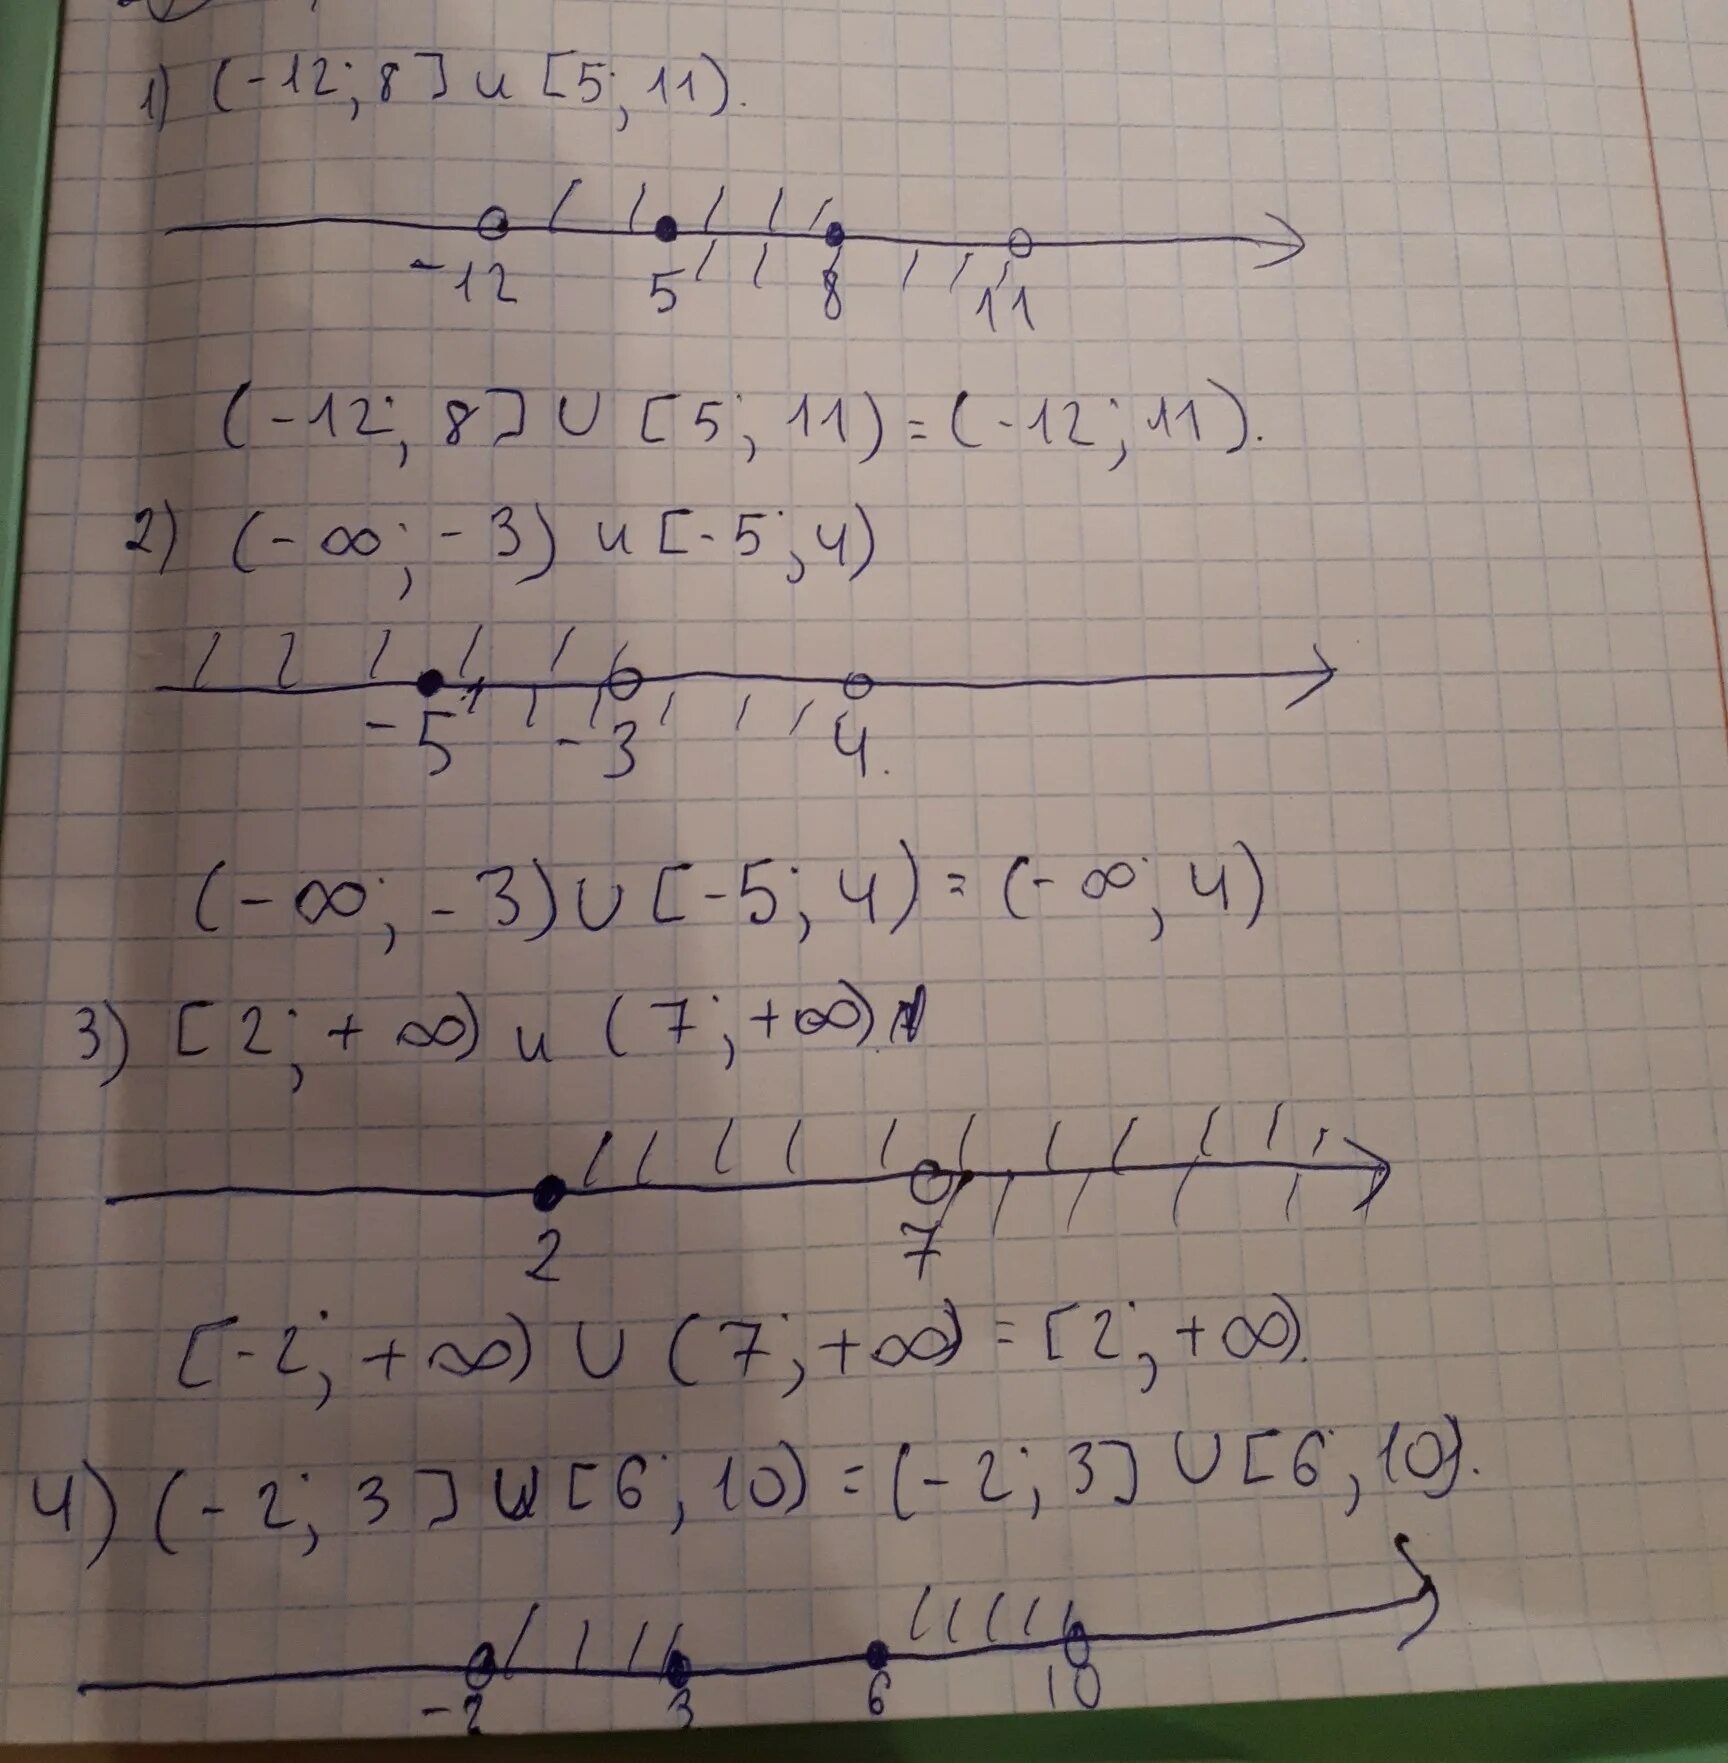 1) (-12; 8] и [5; 11).
-12 5 8 11
(-12; 8] ∪ [5; 11) = (-12; 11).
2) (-∞; -3) и [-5; 4)
-5 -3 4.
(-∞; -3) ∪ [-5; 4) = (-∞; 4)
3) [2; +∞) и (7; +∞)
2 7
[-2; +∞) ∪ (7; +∞) = [2; +∞).
4) (-2; 3] ∪ [6; 10) = (-2; 3] ∪ [6; 10).
-2 3 6 10